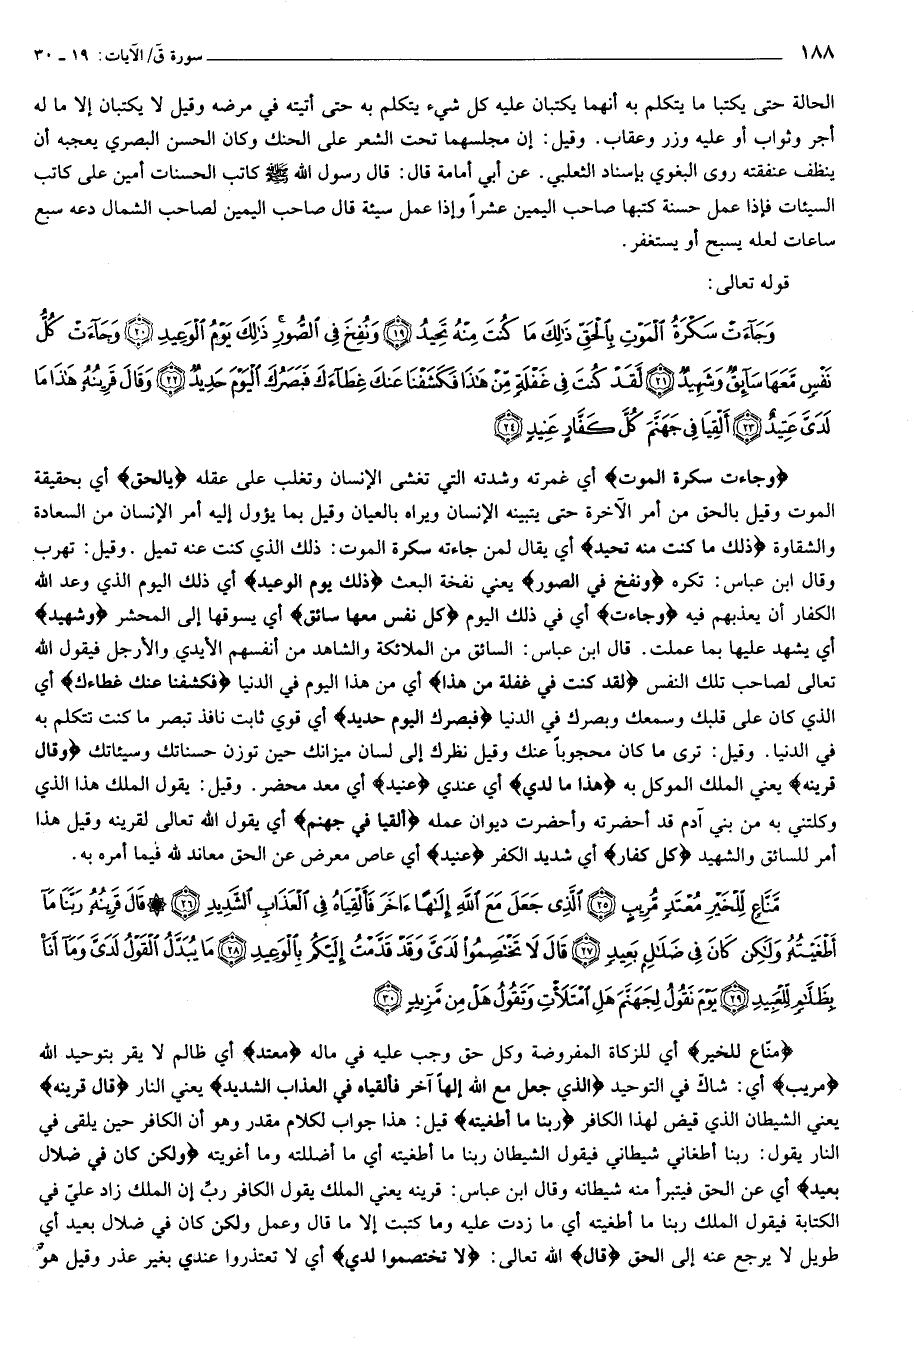 ١٨٨ سورة قۤ/ الآيات: ١٩ ـ ٣٠
الحالة حتى يكتبا ما يتكلم به أنهما يكتبان عليه كل شيء يتكلم به حتى أتيته في مرضه وقيل لا يكتبان إلا ما له
أجر وثواب أو عليه وزر وعقاب. وقيل: إن مجلسهما تحت الشعر على الحنك وكان الحسن البصري يعجبه أن
ينظف عنفقته روى البغوي بإسناد الثعلبي. عن أبي أمامة قال: قال رسول الله ﷺ كاتب الحسنات أمين على كاتب
السيئات فإذا عمل حسنة كتبها صاحب اليمين عشراً وإذا عمل سيئة قال صاحب اليمين لصاحب الشمال دعه سبع
ساعات لعله يسبح أو يستغفر.
قوله تعالى:
وَجَآءَتْ سَكْرَةُ ٱلْمَوْتِ بِٱلْحَقِّ ذَٰلِكَ مَا كُنتَ مِنْهُ تَحِيدُ ﴿١٩﴾ وَنُفِخَ فِى ٱلصُّورِ ۚ ذَٰلِكَ يَوْمُ ٱلْوَعِيدِ ﴿٢٠﴾ وَجَآءَتْ كُلُّ
نَفْسٍ مَّعَهَا سَآئِقٌ وَشَهِيدٌ ﴿٢١﴾ لَّقَدْ كُنتَ فِى غَفْلَةٍ مِّنْ هَٰذَا فَكَشَفْنَا عَنكَ غِطَآءَكَ فَبَصَرُكَ ٱلْيَوْمَ حَدِيدٌ ﴿٢٢﴾ وَقَالَ قَرِينُهُۥ هَٰذَا مَا
لَدَىَّ عَتِيدٌ ﴿٢٣﴾ أَلْقِيَا فِى جَهَنَّمَ كُلَّ كَفَّارٍ عَنِيدٍ ﴿٢٤﴾
﴿وجاءت سكرة الموت﴾ أي غمرته وشدته التي تغشى الإنسان وتغلب على عقله ﴿بالحق﴾ أي بحقيقة
الموت وقيل بالحق من أمر الآخرة حتى يتبينه الإنسان ويراه بالعيان وقيل بما يؤول إليه أمر الإنسان من السعادة
والشقاوة ﴿ذلك ما كنت منه تحيد﴾ أي يقال لمن جاءته سكرة الموت: ذلك الذي كنت عنه تميل .وقيل: تهرب
وقال ابن عباس: تكره ﴿ونفخ في الصور﴾ يعني نفخة البعث ﴿ذلك يوم الوعيد﴾ أي ذلك اليوم الذي وعد الله
الكفار أن يعذبهم فيه ﴿وجاءت﴾ أي في ذلك اليوم ﴿كل نفس معها سائق﴾ أي يسوقها إلى المحشر ﴿وشهيد﴾
أي يشهد عليها بما عملت. قال ابن عباس: السائق من الملائكة والشاهد من أنفسهم الأيدي والأرجل فيقول الله
تعالى لصاحب تلك النفس ﴿لقد كنت في غفلة من هذا﴾ أي من هذا اليوم في الدنيا ﴿فكشفنا عنك غطاءك﴾ أي
الذي كان على قلبك وسمعك وبصرك في الدنيا ﴿فبصرك اليوم حديد﴾ أي قوي ثابت نافذ تبصر ما كنت تتكلم به
في الدنيا. وقيل: ترى ما كان محجوباً عنك وقيل نظرك إلى لسان ميزانك حين توزن حسناتك وسيئاتك ﴿وقال
قرينه﴾ يعني الملك الموكل به ﴿هذا ما لدي﴾ أي عندي ﴿عنيد﴾ أي معد محضر. وقيل: يقول الملك هذا الذي
وكلتني به من بني آدم قد أحضرته وأحضرت ديوان عمله ﴿ألقيا في جهنم﴾ أي يقول الله تعالى لقرينه وقيل هذا
أمر للسائق والشهيد ﴿كل كفار﴾ أي شديد الكفر ﴿عنيد﴾ أي عاص معرض عن الحق معاند لله فيما أمره به.
مَّنَّاعٍ لِّلْخَيْرِ مُعْتَدٍ مُّرِيبٍ ﴿٢٥﴾ ٱلَّذِى جَعَلَ مَعَ ٱللَّهِ إِلَٰهًا ءَاخَرَ فَأَلْقِيَاهُ فِى ٱلْعَذَابِ ٱلشَّدِيدِ ﴿٢٦﴾ ۞ قَالَ قَرِينُهُۥ رَبَّنَا مَآ
أَطْغَيْتُهُۥ وَلَٰكِن كَانَ فِى ضَلَٰلٍ بَعِيدٍ ﴿٢٧﴾ قَالَ لَا تَخْتَصِمُوا۟ لَدَىَّ وَقَدْ قَدَّمْتُ إِلَيْكُم بِٱلْوَعِيدِ ﴿٢٨﴾ مَا يُبَدَّلُ ٱلْقَوْلُ لَدَىَّ وَمَآ أَنَا۠
بِظَلَّٰمٍ لِّلْعَبِيدِ ﴿٢٩﴾ يَوْمَ نَقُولُ لِجَهَنَّمَ هَلِ ٱمْتَلَأْتِ وَتَقُولُ هَلْ مِن مَّزِيدٍ ﴿٣٠﴾
﴿منّاع للخير﴾ أي للزكاة المفروضة وكل حق وجب عليه في ماله ﴿معتد﴾ أي ظالم لا يقر بتوحيد الله
﴿مريب﴾ أي: شاكّ في التوحيد ﴿الذي جعل مع الله إلهاً آخر فألقياه في العذاب الشديد﴾ يعني النار ﴿قال قرينه﴾
يعني الشيطان الذي قيض لهذا الكافر ﴿ربنا ما أطغيته﴾ قيل: هذا جواب لكلام مقدر وهو أن الكافر حين يلقى في
النار يقول: ربنا أطغاني شيطاني فيقول الشيطان ربنا ما أطغيته أي ما أضللته وما أغويته ﴿ولكن كان في ضلال
بعيد﴾ أي عن الحق فيتبرأ منه شيطانه وقال ابن عباس: قرينه يعني الملك يقول الكافر ربِّ إن الملك زاد عليّ في
الكتابة فيقول الملك ربنا ما أطغيته أي ما زدت عليه وما كتبت إلا ما قال وعمل ولكن كان في ضلال بعيد أي
طويل لا يرجع عنه إلى الحق ﴿قال﴾ الله تعالى: ﴿لا تختصموا لدي﴾ أي لا تعتذروا عندي بغير عذر وقيل هو